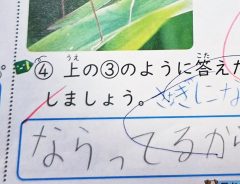 ④ 上の③のように答えた
しましょう。
さぎにな
ならってるから